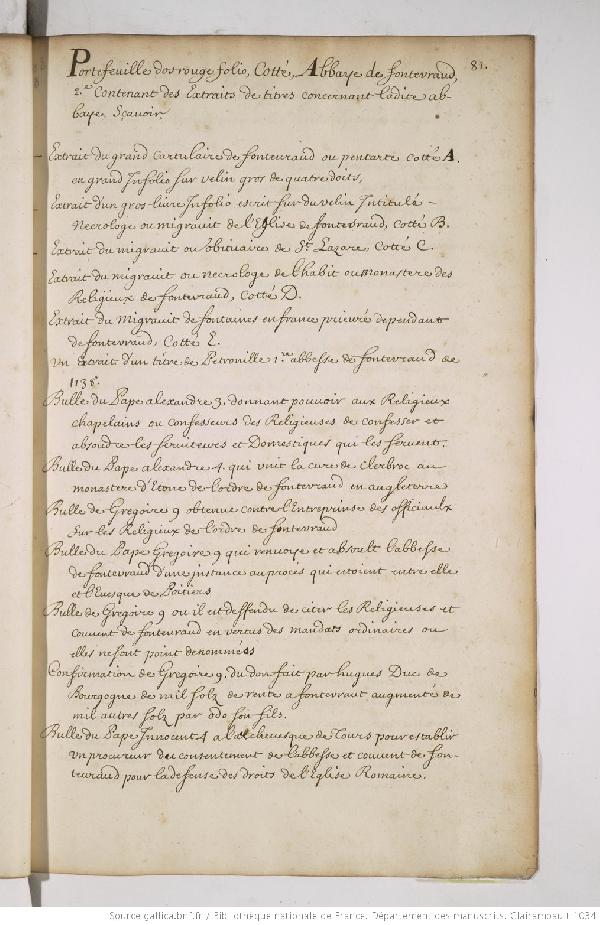 Portefeuille dos rouge folio, Cotté, Abbaye de fontevraud, 81.
2.e Contenant des Extraits de titres concernant ladite ab-
baye, Sçavoir
Extrait du grand Cartulaire de fonteuraud ou pentarte cotté A.
en grand Infolio sur velin gros de quatre doits,
Extrait d'un gros liure Infolio escrit sur du velin Intitulé -
Necrologe ou migrauit de l'Eglise de fontevraud, Cotté B.
Extrait du migrauit ou obituaire de St. Lazare, Cotté C.
Extrait du migrauit ou necrologe de l'habit ou monastere des
Religieux de fontevraud, Cotté D.
Extrait du Migrauit de fontaines en france prieuré dependant
de fontevraud, Cotté E.
Un extrait d'un titre de Petronille 1.re abbesse de fontevraud de
Bulle du Pape alexandre 3. donnant pouvoir aux Religieux
chapelains ou confesseurs des Religieuses de confesser et
absoudre les seruiteurs et Domestiques qui les seruent.
Bulle du Pape alexandre 4. qui unit la cure de Clerbroc au
monastere d'Etone de l'ordre de fontevraud en angleterre
Bulle de Gregoire 9 obtenue contre l'Entreprinse des officiaulx
sur les Religieux de l'ordre de fontevraud
Bulle du Pape Gregoire 9 qui renuoye et absoult l'abbesse
de fontevraud d'une instance au procés qui estoient entre elle
et l'Euesque de Poitiers
Bulle de Gregoire 9 ou il est deffendu de citer les Religieuses et
couuent de fontevraud en vertus des mandats ordinaires ou
elles ne sont point denommeés
Confirmation de Gregoire 9. du don fait par hugues Duc de
Bourgogne de mil solz de rente a fontevraut augmenté de
mil autres solz par odo son fils.
Bulle du Pape Innocent 4 a l'archeuesque de Tours pour establir
un procureur du consentement de l'abbesse et couuent de fon-
teuraud pour la defense des droits de l'Eglise Romaine.
Source gallica.bnf.fr / Bibliothèque nationale de France. Département des manuscrits. Clairambault 1034